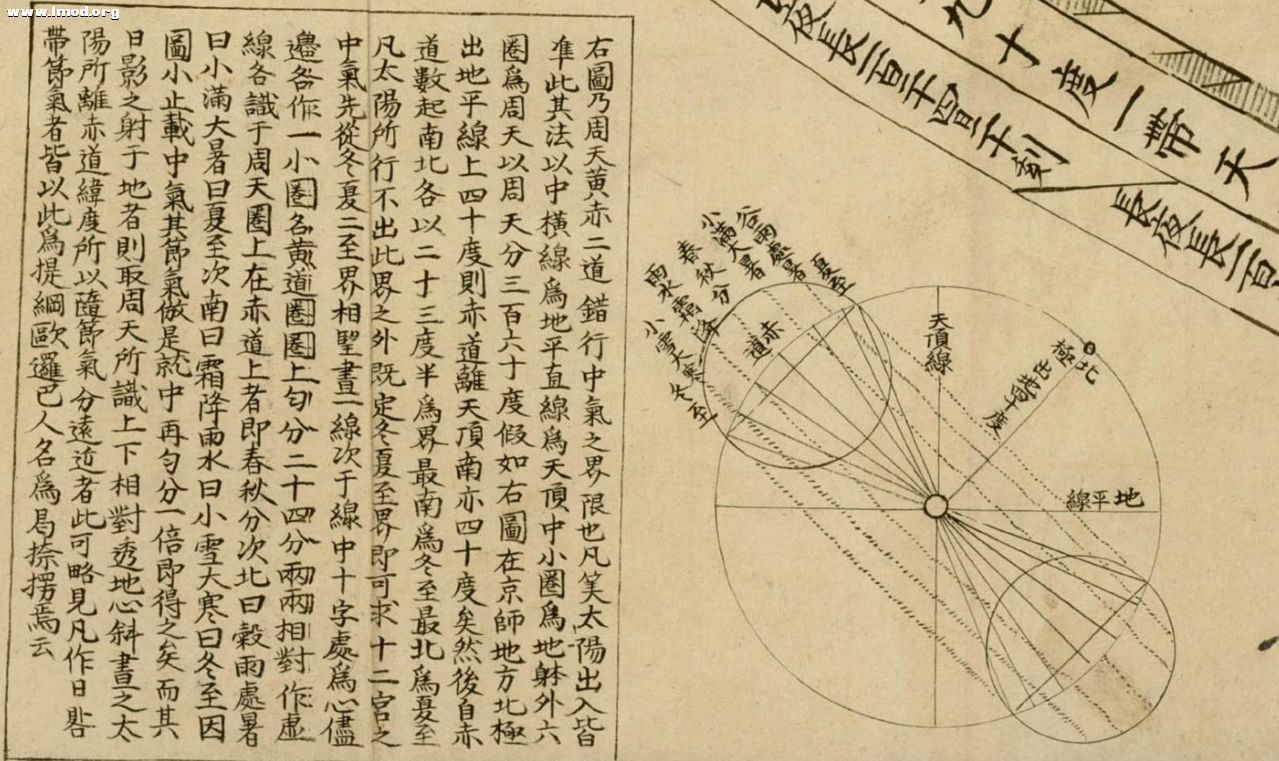 www.lmod.org
右圖乃周天黃赤二道錯行中氣之界限也凡筭太陽出入皆
准此其法以中橫線爲地平直線爲天頂中小圈爲地躰外六
圈爲周天以周天分三百六十度假如右圖在京師地方北極
出地平線上四十度則赤道離天頂南亦四十度矣然後自赤
道數起南北各以二十三度半爲界最南爲冬至最北爲夏至
凡太陽所行不出此界之外既定冬夏至界即可求十二宮之
中氣先從冬夏二至界相望畫一線次于線中十字處爲心儘
邉各作一小圈名黃道圈圈上匀分二十四分兩兩相對作虛
線各識于周天圈上在赤道上者即春秋分次北曰穀雨處暑
曰小滿大暑曰夏至次南曰霜降雨水曰小雪大寒曰冬至因
圖小止載中氣其節氣倣是就中再匀分一倍即得之矣而其
日影之射于地者則取周天所識上下相對透地心斜畫之太
陽所離赤道緯度所以隨節氣分遠近者此可略見凡作日晷
帶節氣者皆以此爲提綱歐邏巴人名爲曷捺楞焉云
九十度一帶天
夜長一百二十四日二十刻
長夜長一百
谷雨處暑夏至
小滿大暑
春秋分
雨水霜降
小雪大寒冬至
赤道
天頂線
北極
出地四十度
地平線